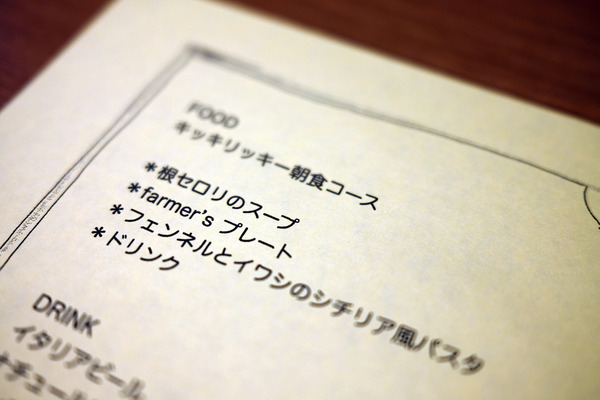 FOOD
キッキリッキー朝食コース
*根セロリのスープ
*farmer's プレート
*フェンネルとイワシのシチリア風パスタ
*ドリンク
DRINK
イタリアビール
ナチュール